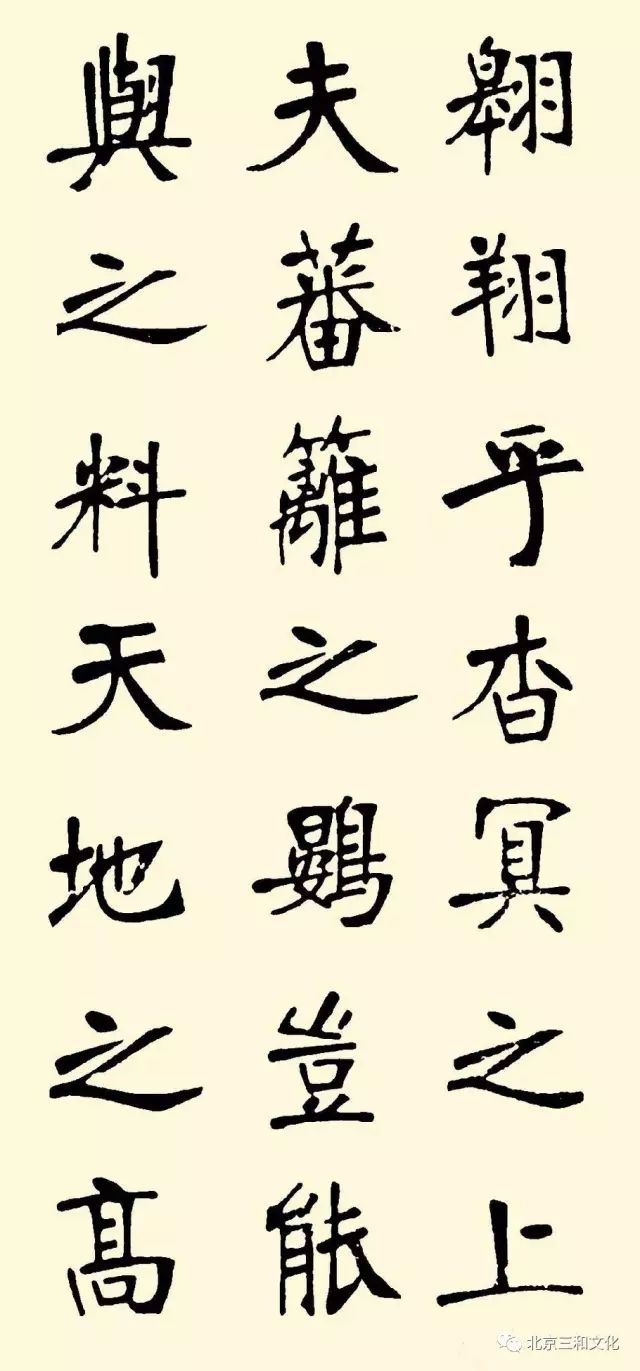 翱翔乎杳冥之上
夫蕃籬之鷃豈能
與之料天地之高
北京三和文化